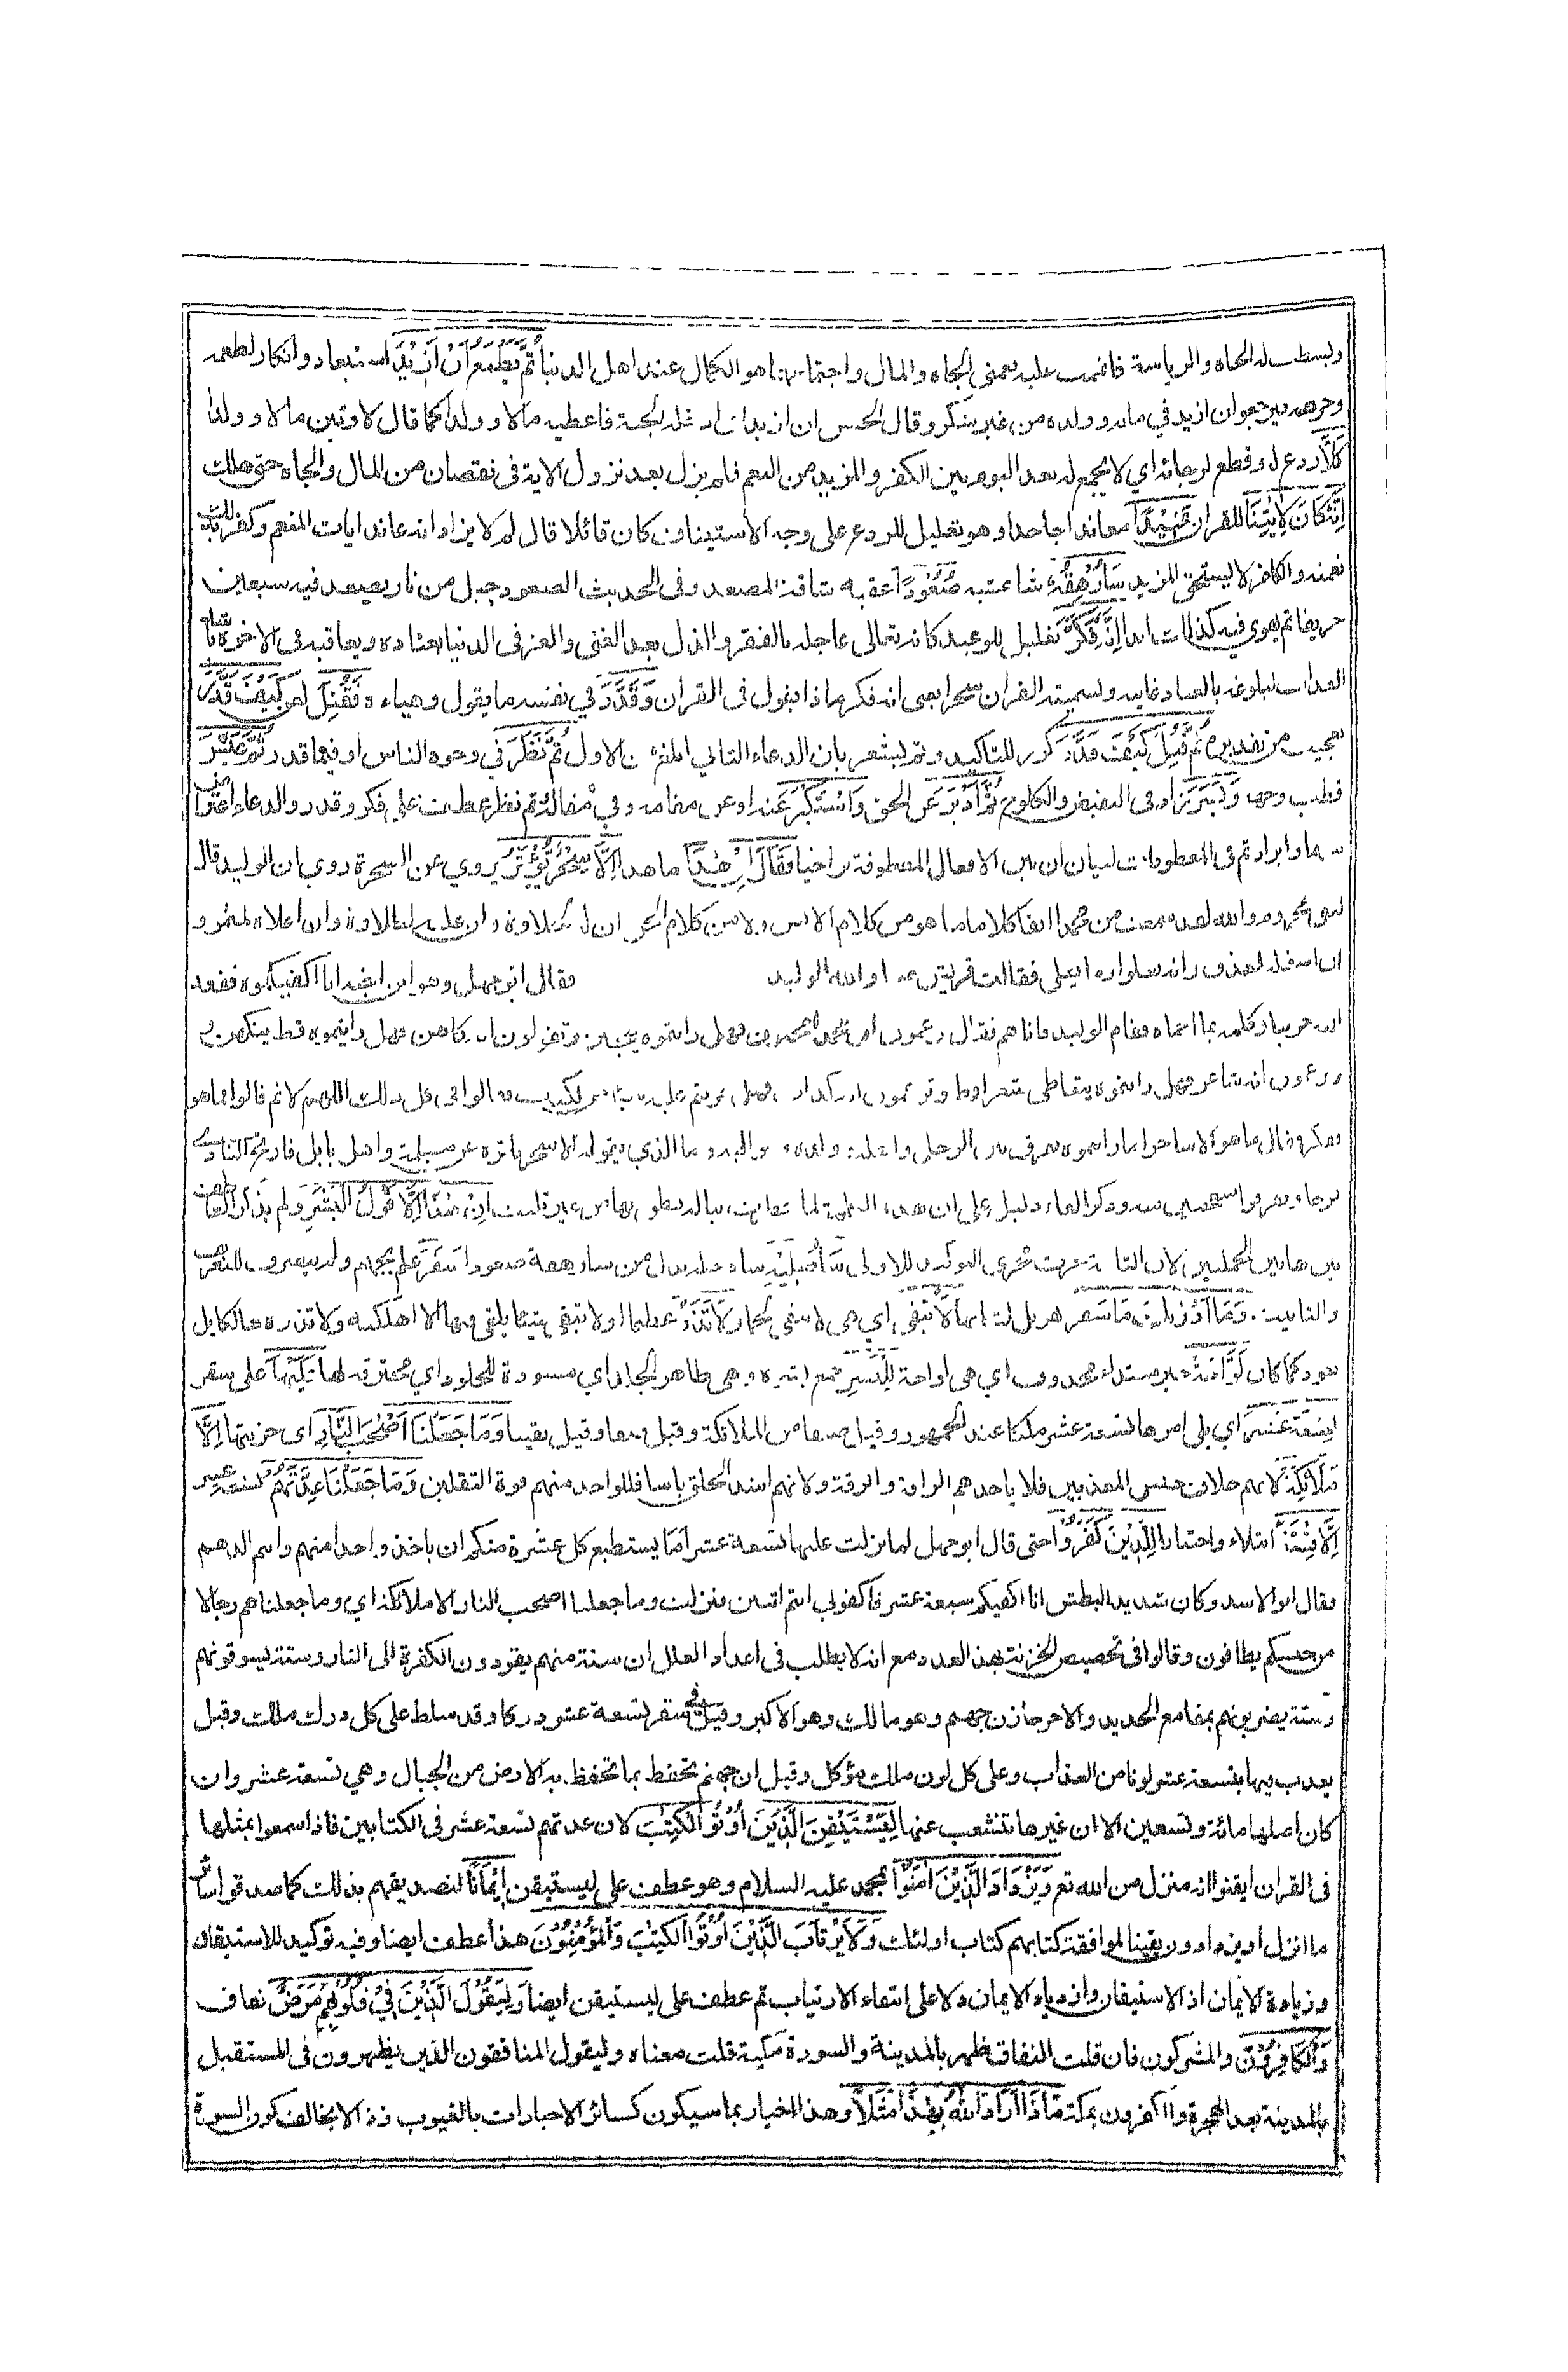 وبسطت له الجاه والرياسة فاتممت عليه نعمتي الجاه والمال واجتماعهما هو الكمال عند اهل الدنيا ثُمَّ يَطْمَعُ أَنْ أَزِيدَ استبعاد وانكار لطمعه
وحرصه فيرجو ان ازيد في ماله وولده من غير شكر وقال الحسن ان ازيد ان ادخله الجنة فاعطيه مالا وولدا كما قال لاوتين مالا وولدا
كَلَّا ردع له وقطع لرجائه اي لا يجمع له بعد اليوم بين الكفر والمزيد من النعم فلم يزل بعد نزول الاية في نقصان من المال والجاه حتى هلك
إِنَّهُ كَانَ لِآيَاتِنَا للقران عَنِيدًا معاندا جاحدا وهو تعليل للردع على وجه الاستيناف كان قائلا قال لم لا يزاد انه عاند ايات المنعم وكفر بذلك
نعمته والكافر لا يستحق المزيد سَأُرْهِقُهُ ساغشيه صَعُودًا عقبة شاقة المصعد وفي الحديث الصعود جبل من نار يصعد فيه سبعين
خريفا ثم يهوي فيه كذلك ابدا إِنَّهُ فَكَّرَ تعليل للوعيد كانه تعالى عاجله بالفقر والذل بعد الغنى والعز في الدنيا بعناده ويعاقبه في الاخرة باشد
العذاب لبلوغه بالعناد غايته وتسميته القران سحرا يعني انه فكر ماذا يقول في القران وَقَدَّرَ في نفسه ما يقول وهياه فَقُتِلَ لعن كَيْفَ قَدَّرَ
تعجيب من تقديره ثُمَّ قُتِلَ كَيْفَ قَدَّرَ كرر للتاكيد وثم يشعر بان الدعاء الثاني ابلغ من الاول ثُمَّ نَظَرَ في وجوه الناس او فيما قدر ثُمَّ عَبَسَ
قطب وجهه وَبَسَرَ زاد في التقبض والكلوح ثُمَّ أَدْبَرَ عن الحق وَاسْتَكْبَرَ عنه او عن مقامه وفي مقاله ثم نظر عطف على فكر وقدر والدعاء اعتراض
بينهما وايراد ثم في المعطوفات لبيان ان بين الافعال المعطوفة تراخيا فَقَالَ إِنْ هَٰذَا ما هذا إِلَّا سِحْرٌ يُؤْثَرُ يروي عن السحرة روي ان الوليد قال
لبني مخزوم والله لقد سمعت من محمد انفا كلاما ما هو من كلام الانس ولا من كلام الجن ان له لحلاوة وان عليه لطلاوة وان اعلاه لمثمر و
ان اسفله لمغدق وانه يعلو ولا يعلى فقالت قريش صبا والله الوليد فقال ابو جهل وهو ابن اخيه انا اكفيكموه فقعد
اليه حزينا وكلمه بما احماه فقام الوليد فاتاهم فقال تزعمون ان محمدا مجنون فهل رايتموه يخنق وتقولون انه كاهن فهل رايتموه قط يتكهن و
تزعمون انه شاعر فهل رايتموه يتعاطى شعرا قط وتزعمون انه كذاب فهل جربتم عليه شيئا من الكذب فقالوا في كل ذلك اللهم لا ثم قالوا فما هو
ففكر فقال ما هو الا ساحر اما رايتموه يفرق بين الرجل واهله وولده ومواليه وما الذي يقوله الا سحر ياثره عن مسيلمة واهل بابل فارتج النادي
إِنْ هَٰذَا إِلَّا قَوْلُ الْبَشَرِ ولم يذكر العاطف
بين هاتين الجملتين لان الثانية جرت مجرى التوكيد للاولى سَأُصْلِيهِ سادخله بدل من سارهقه صعودا سَقَرَ علم لجهنم ولم ينصرف للتعريف
والتانيث وَمَا أَدْرَاكَ مَا سَقَرُ تهويل لشانها لَا تُبْقِي اي هي لا تبقي لحما وَلَا تَذَرُ عظما او لا تبقي شيئا يلقى فيها الا اهلكته ولا تذره هالكا بل
يعود كما كان لَوَّاحَةٌ خبر مبتداء محذوف اي هي لواحة لِلْبَشَرِ جمع بشرة وهي ظاهر الجلد اي مسودة للجلود اي محترقة لها عَلَيْهَا على سقر
تِسْعَةَ عَشَرَ اي يلي امرها تسعة عشر ملكا عند الجمهور وقيل صنفا من الملائكة وقيل صفا وقيل نقيبا وَمَا جَعَلْنَا أَصْحَابَ النَّارِ اي خزنتها إِلَّا
مَلَائِكَةً لانهم خلاف جنس المعذبين فلا ياخذهم الرافة والرقة ولانهم اشد الخلق باسا فللواحد منهم قوة الثقلين وَمَا جَعَلْنَا عِدَّتَهُمْ تسعة عشر
إِلَّا فِتْنَةً ابتلاء واختبارا لِلَّذِينَ كَفَرُوا حتى قال ابو جهل لما نزلت عليها تسعة عشر اما يستطيع كل عشرة منكم ان ياخذوا واحدا منهم وانتم الدهم
فقال ابو الاسد وكان شديد البطش انا اكفيكم سبعة عشر فاكفوني انتم اثنين فنزلت وما جعلنا اصحب النار الا ملائكة اي وما جعلناهم رجالا
من جنسكم يطاقون وقالوا في تخصيص الخزنة بهذا العدد مع انه لا يطلب في اعداد العلل ان ستة منهم يقودون الكفرة الى النار وستة يسوقونهم
وستة يضربونهم بمقامع الحديد والاخر خازن جهنم وهو مالك وهو الاكبر وقيل في سقر تسعة عشر دركا وقد سلط على كل درك ملك وقيل
يعذب فيها بتسعة عشر لونا من العذاب وعلى كل لون ملك موكل وقيل ان جهنم تحفظ بما تحفظ به الارض من الجبال وهي تسعة عشر وان
كان اصلها مائة وتسعين الا ان غيرها تتشعب عنها لِيَسْتَيْقِنَ الَّذِينَ أُوتُوا الْكِتَٰبَ لان عدتهم تسعة عشر في الكتابين فاذا سمعوا بمثلها
في القران ايقنوا انه منزل من الله تع وَيَزْدَادَ الَّذِينَ آمَنُوا بمحمد عليه السلام وهو عطف على ليستيقن إِيمَانًا لتصديقهم بذلك كما صدقوا سائر
ما انزل او يزدادون يقينا لموافقة كتابهم كتاب اولئك وَلَا يَرْتَابَ الَّذِينَ أُوتُوا الْكِتٰبَ وَالْمُؤْمِنُونَ هذا عطف ايضا وفيه توكيد للاستيقان
وزيادة الايمان اذ الاستيقان وازدياد الايمان دلا على انتفاء الارتياب ثم عطف على ليستيقن ايضا وَلِيَقُولَ الَّذِينَ فِي قُلُوبِهِمْ مَرَضٌ نفاق
وَالْكَافِرُونَ والمشركون فان قلت النفاق ظهر بالمدينة والسورة مكية قلت معناه وليقول المنافقون الذين يظهرون في المستقبل
بالمدينة بعد الهجرة والكفرون بمكة مَاذَا أَرَادَ اللهُ بِهَٰذَا مَثَلًا وهذا اخبار بما سيكون كسائر الاخبارات بالغيوب وذا لا يخالف كون السورة